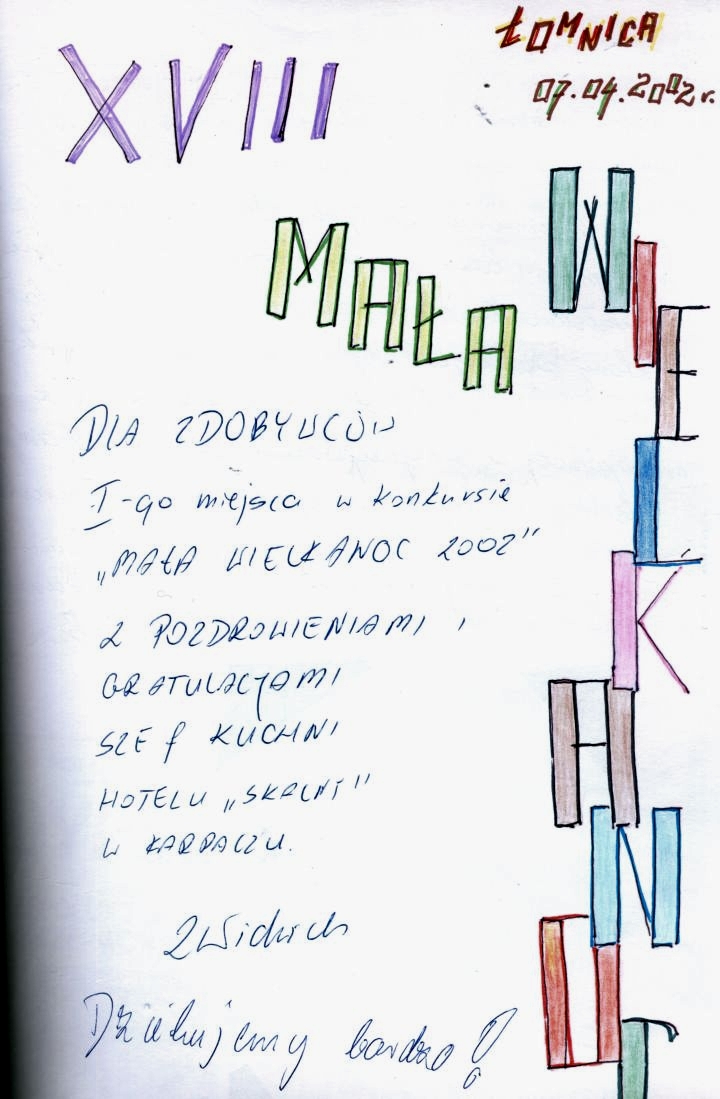 XVIII
ŁOMNICA
07.04.2002 r.
MAŁA
WIELKANOC
DLA ZDOBYWCÓW
I-go miejsca w konkursie
„MAŁA WIELKANOC 2002"
Z POZDROWIENIAMI i
GRATULACJAMI
SZEf KUCHNI
HOTELU „SKALNY"
W KARPACZU.
Dziękujemy bardzo!